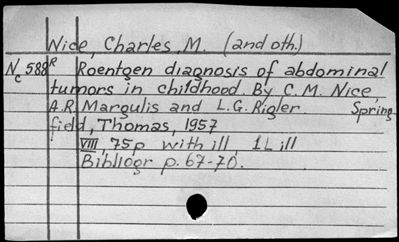 Nice, Charles M. (and oth.)
Nc 588 R Roentgen diagnosis of abdominal
tumors in childhood. By C. M. Nice
A.R. Margulis and L.G. Rigler Spring
field, Thomas, 1957
VIII, 75p with ill, 1L ill
Bibliogr p. 67-70.